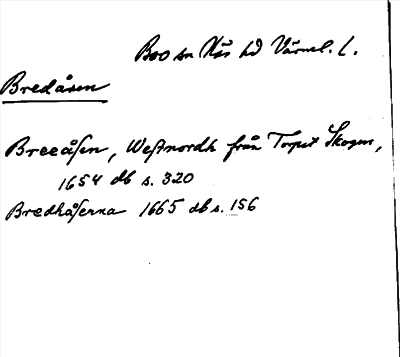 Boo sn Näs hd Värml. l.
Bredåsen
Breeåsen, Westnordh från Torpet Skogen,
1654 db s. 320
Bredhåserna 1665 db s. 156